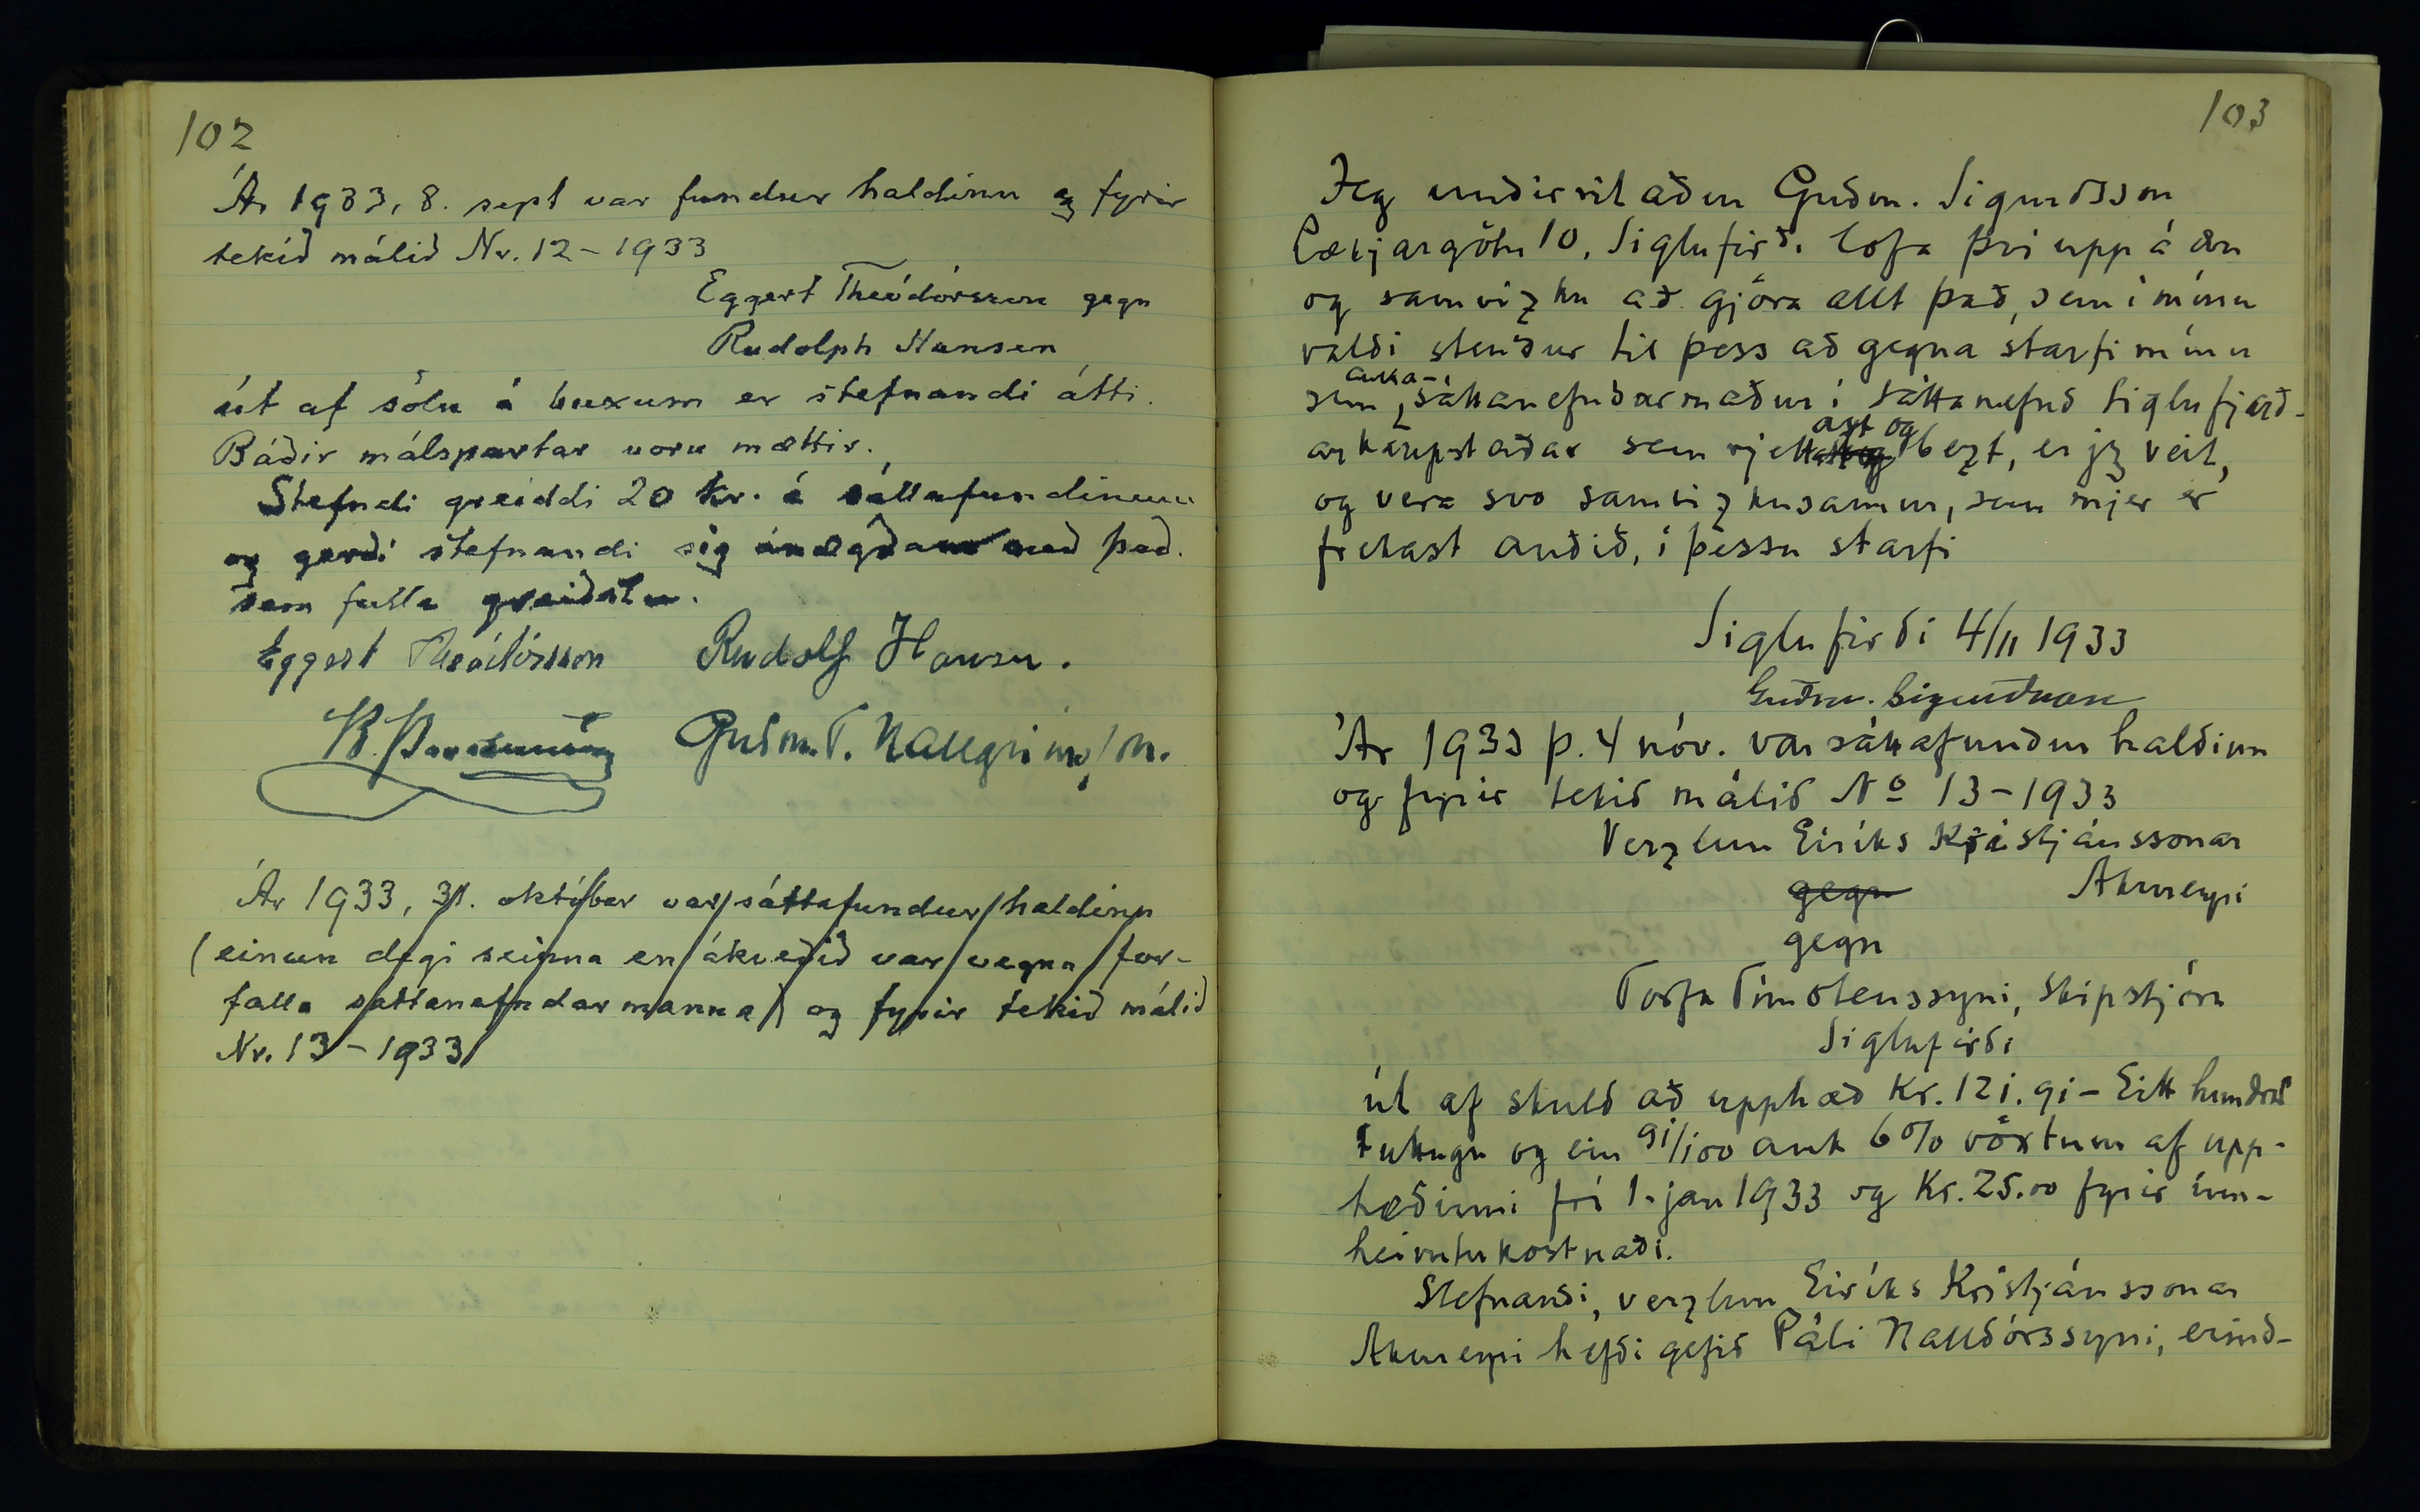 102
Ár 1933, 8. sept var fundur haldinn og fyrir
tekið málið Nr. 12 - 1933
Eggert Theódórsson gegn
Rudolph Hansen
út af sölu á buxum er stefnandi átti.
Báðir málspartar voru mættir.
Stefndi greiddi 20 kr. á sáttafundinum
og gerði stefnandi sig ánægðan með það
sem fulla greiðslu.
Eggert Theódórsson Rudolf Hansen.
Guðm. T. Hallgrímss/on.
Ár 1933, 31. október var sáttafundur haldinn
(einum degi seinna en ákveðið var vegna for-
falla sáttanefndarmanna) og fyrir tekið málið
Nr. 13 - 1933
103
Jeg undirritaður Guðm. Sigurðsson
Lækjargötu 10, Siglufirði lofa því uppá æru
og samvizku að gjöra allt það, sem í mínu
valdi stendur til þess að gegna starfi mínu
sem auka-sáttanefndarmaður í sáttanefnd Siglufjarð-
arkaupstaðar sem rjettast og bezt, er jeg veit,
og vera svo samvizkusamur, sem mjer er
frekast auðið, í þessu starfi
Siglufirði 4/11 1933
Guðm. Sigurðsson
Ár 1933 þ. 4 nóv. var sáttafundur haldinn
og fyrir tekið málið No 13 - 1933
Verzlun Eiríks Kristjánssonar
gegn Akureyri
gegn
Torfa Tímoteussyni, skipstjóra
Siglufirði
út af skuld að upphæð Kr. 121.91 - Eitt hundrað
tuttugu og ein 91/100 auk 6% vöxtum af upp-
hæðinni frá 1. jan 1933 og Kr. 25.00 fyrir inn-
heimtukostnaði.
Stefnandi, verzlun Eiríks Kristjánssonar
Akureyri hefði gefið Páli Halldórssyni, erind-